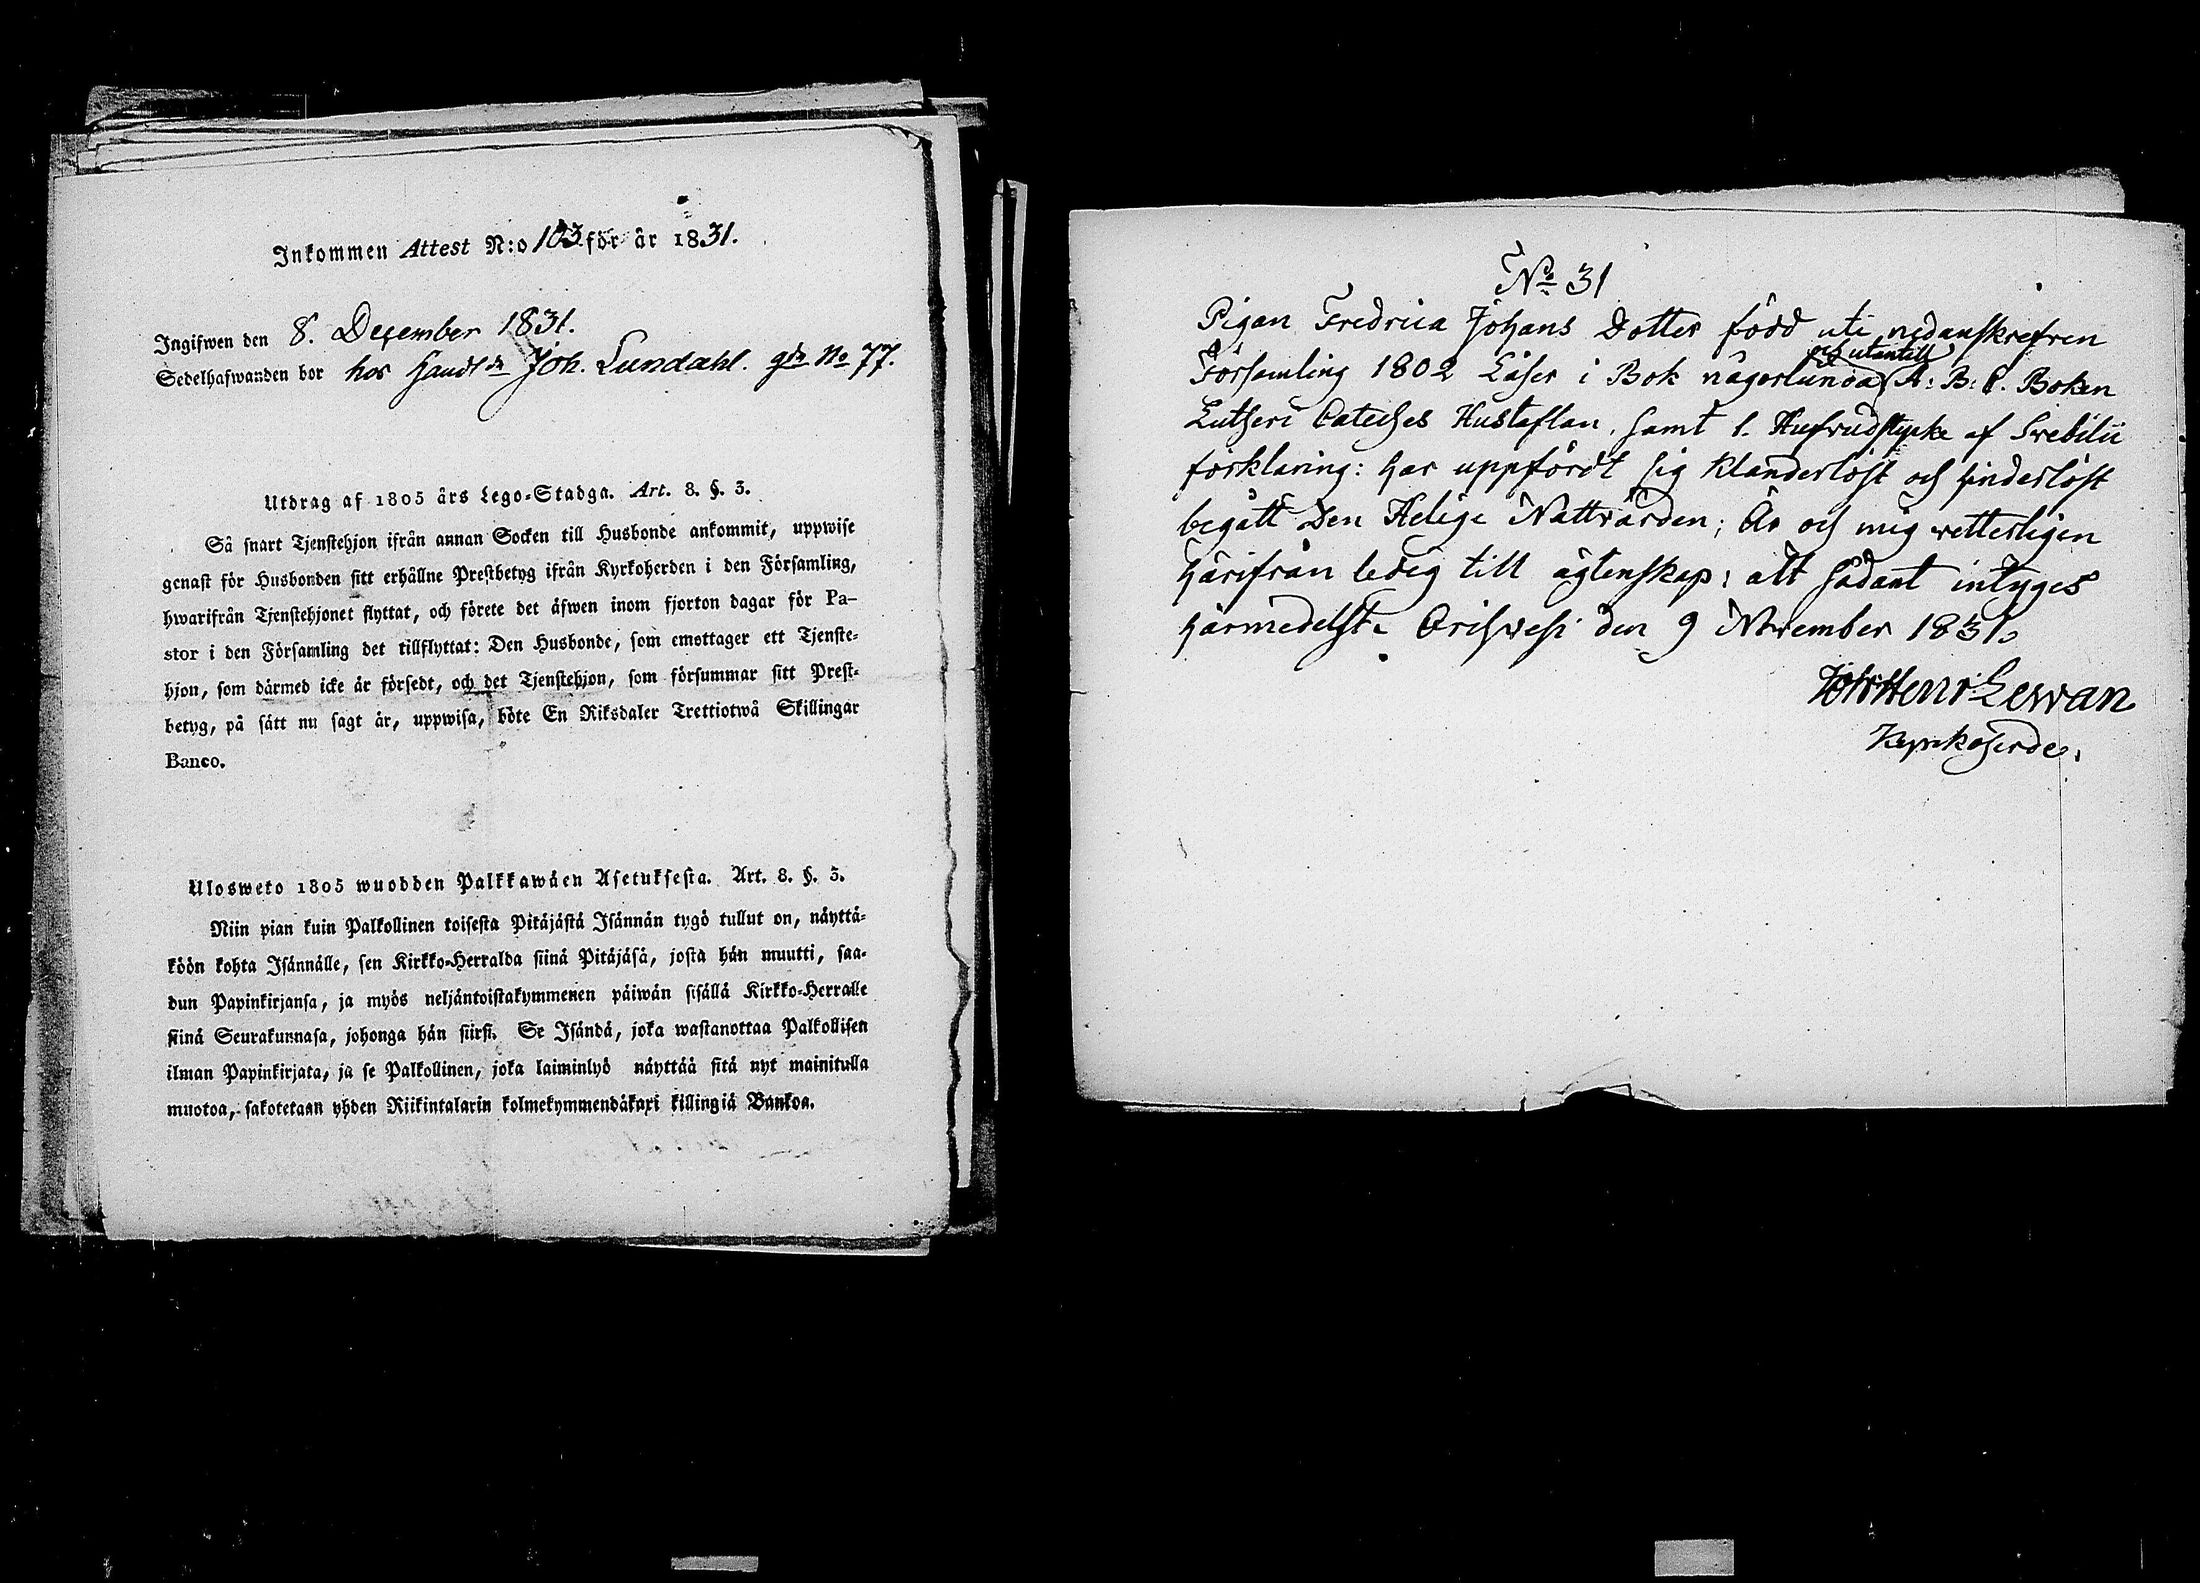 Inkommen Attest N:o 103 för år 1831.
Ingifwen den 8. December 1831.
Sedelhafwanden bor hos Handl:dn Joh. Lundahl. gdn No 77.
Utdrag af 1805 års Lego-Stadga. Art. 8. §. 3.
Så snart Tjenstehjon ifrån annan Socken till Husbonde ankommit, uppwise
genast för Husbonden sitt erhållne Prestbetyg ifrån Kyrkoherden i den Församling,
hwarifrån Tjenstehjonet flyttat, och förete det äfwen inom fjorton dagar för Pa-
stor i den Församling det tillflyttat: Den Husbonde, som emottager ett Tjenste-
hjon, som därmed icke är försedt, och det Tjenstehjon, som försummar sitt Prest-
betyg, på sätt nu sagt är, uppwisa, böte En Riksdaler Trettiotwå Skillingar
Banco.
Ulosweto 1805 wuodden Palkkawäen Asetuksesta. Art. 8. §. 3.
Niin pian kuin Palkollinen toisesta Pitäjästä Isännän tygö tullut on, näyttä-
köön kohta Isännälle, sen Kirkko-Herralda siinä Pitäjäsä, josta hän muutti, saa-
dun Papinkirjansa, ja myös neljäntoistakymmenen päiwän sisällä Kirkko-Herralle
siinä Seurakunnasa, johonga hän siirsi. Se Isändä, joka wastanottaa Palkollisen
ilman Papinkirjata, ja se Palkollinen, joka laiminlyö näyttää sitä nyt mainitulla
muotoa, sakotetaan yhden Riikintalarin kolmekymmendäkaxi killingiä Bankoa.
No 31
Pigan Fredrica Johans Dotter född uti nedanskrefven
Församling 1802 Läser i Bok någorlunda och utantill A:B:C. Boken
Lutheri Cateches Hustaflan, samt 1. Hufvudstycke af Svebilii
förklaring: har uppfördt sig klanderlöst och hinderlöst
begått Den Helige Nattvarden; Är och mig vetterligen
härifrån ledig till ägtenskap: att sådant intyges
härmedelst. Orihvesi den 9 November 1831.
Joh: Henr Levvan
Kyrkoherde.